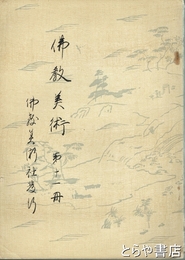 佛教美術 第十一册
佛教美術社發行
とらや書店